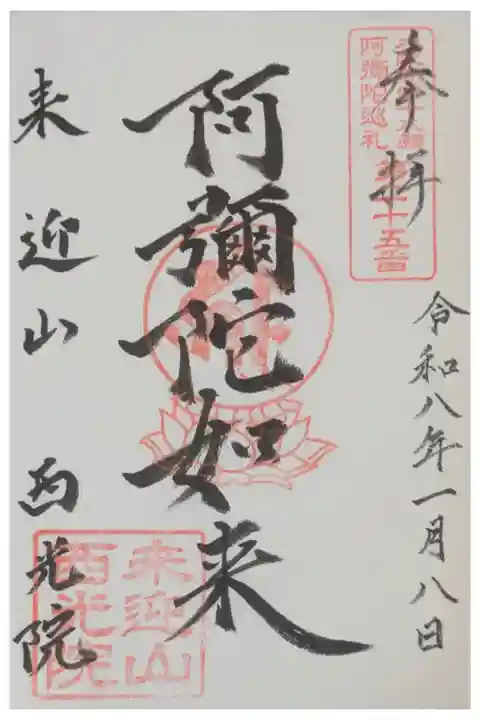 奉拝
阿彌陀巡礼
十五番
令和八年一月八日
阿彌陀如来
来迎山 西光院
来迎山
西光院